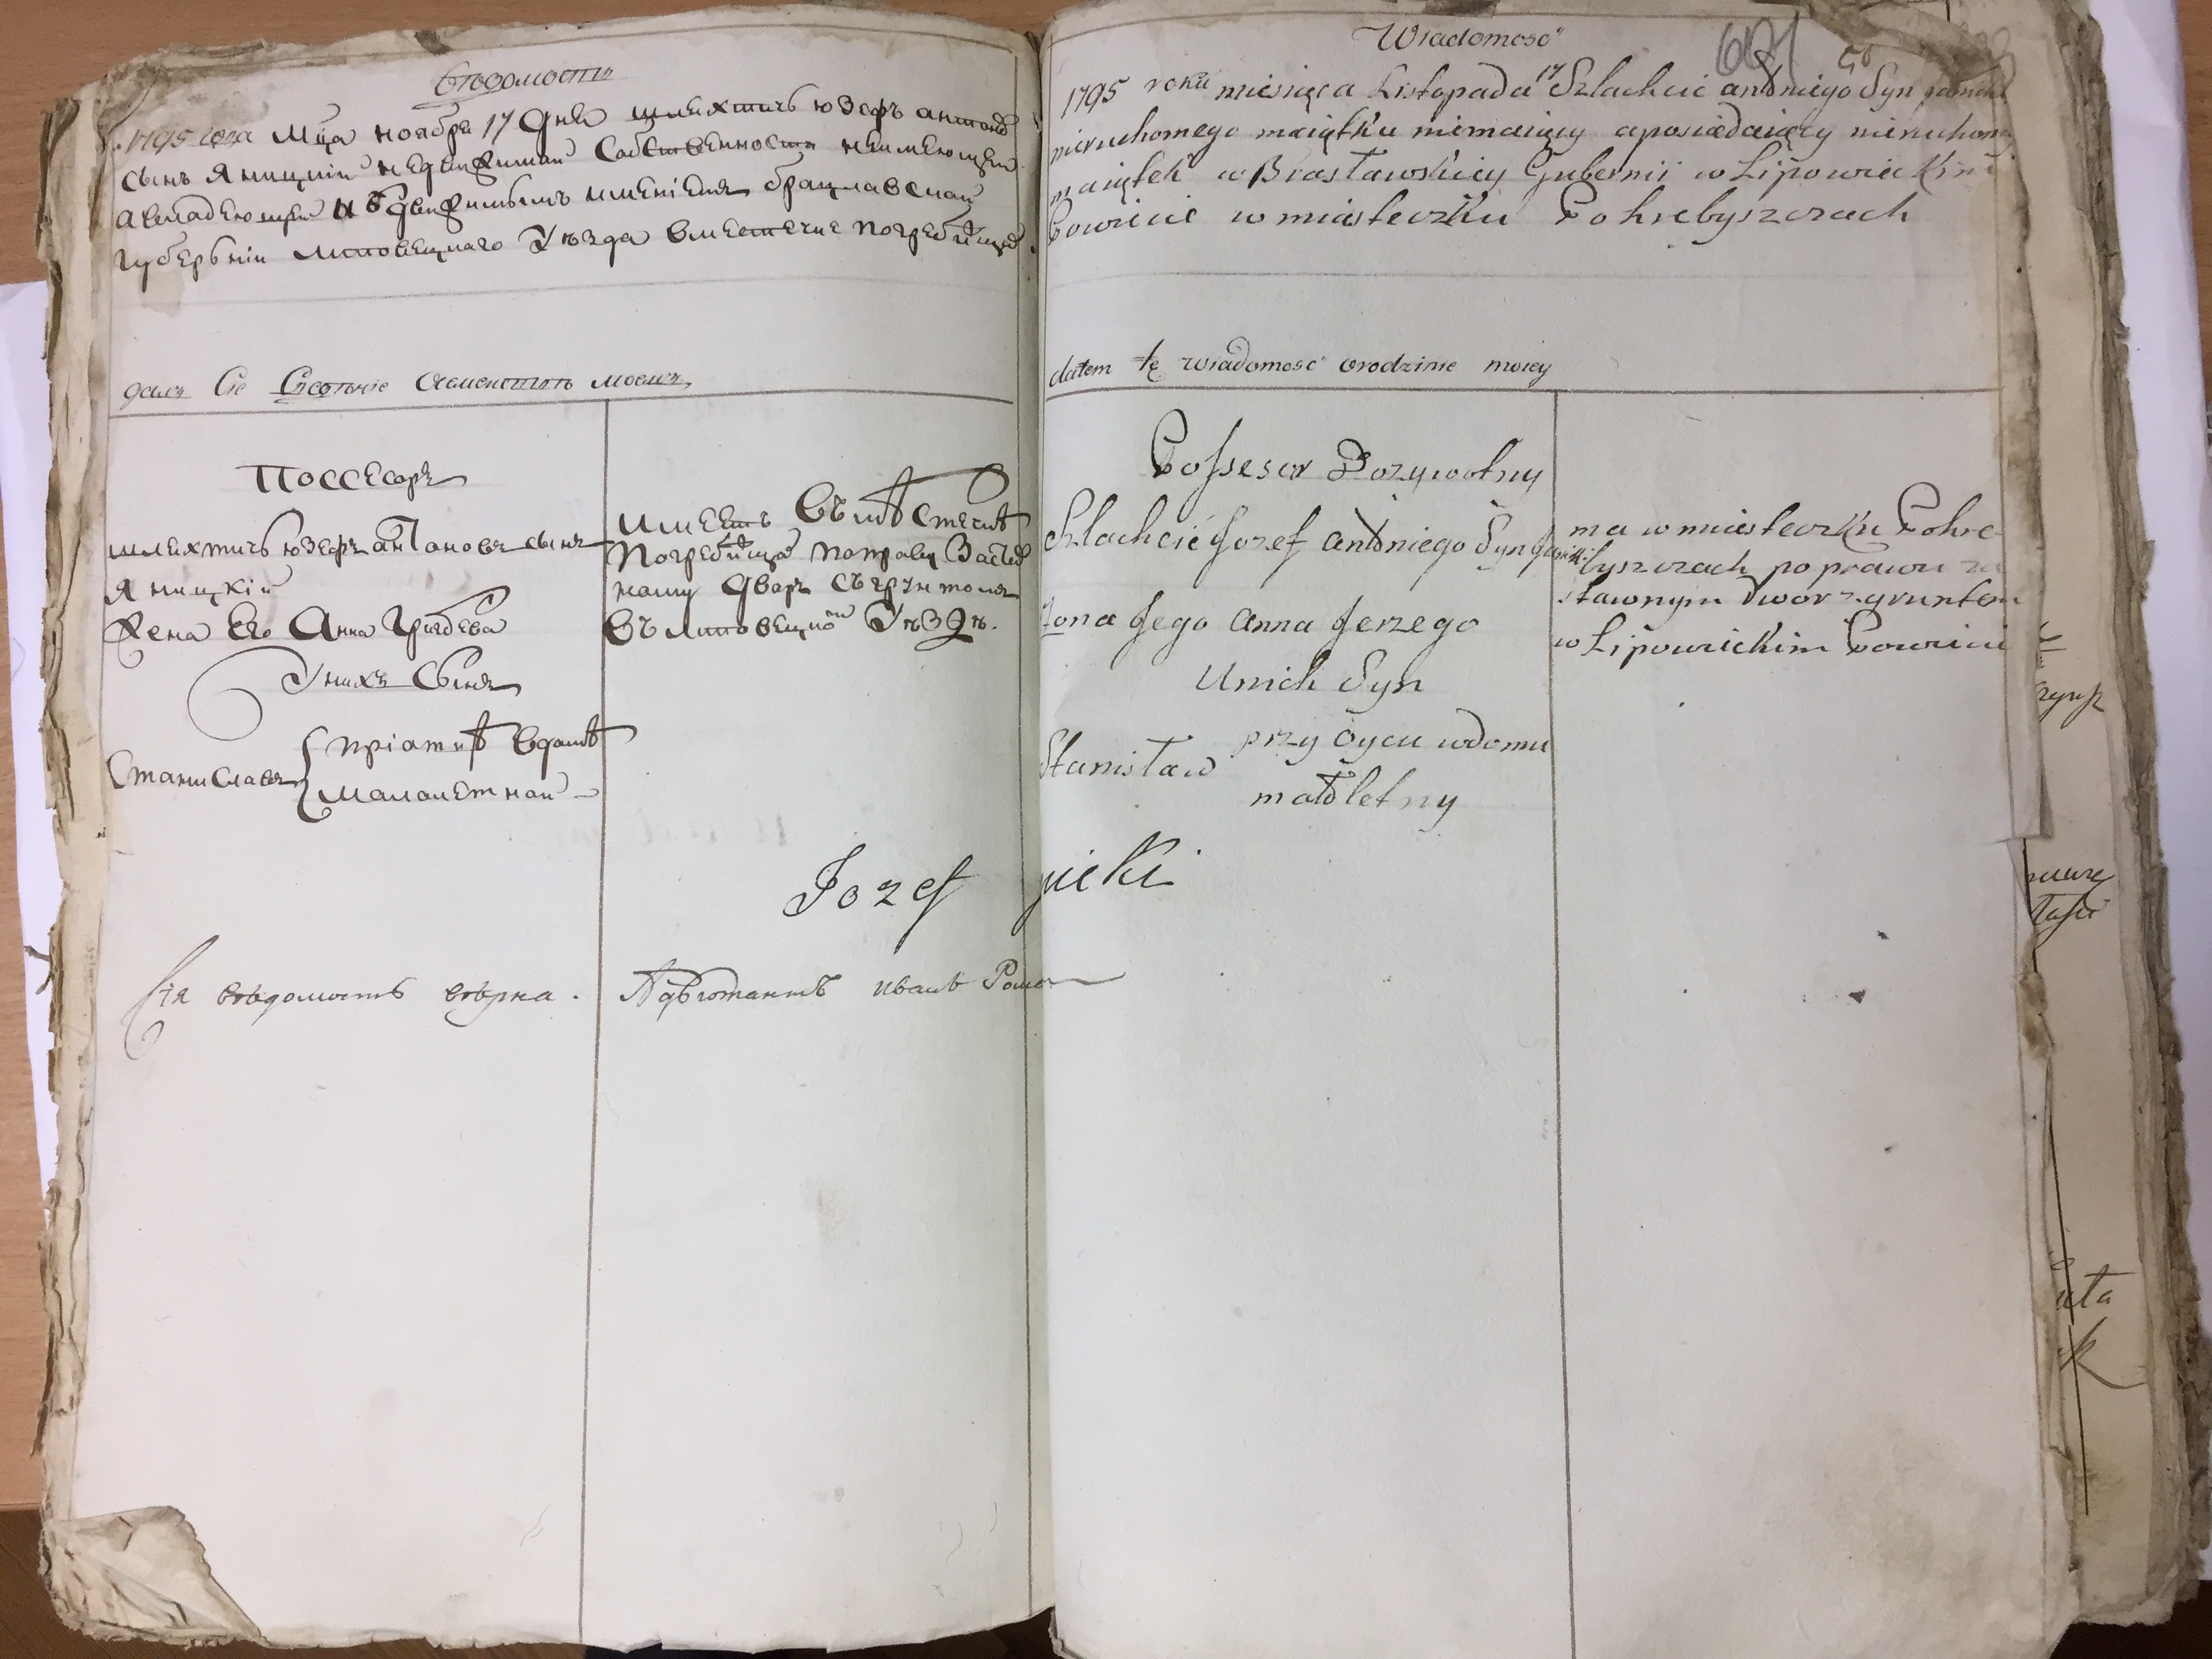 Вѣдомость
1795 года Мца ноября 17 Дня шляхтичь юзефъ антоно
сынъ Яницкій недвижимай Собственности неимеющей
авладеющей Недвижимымъ имѣніемъ брацлавскай
губерьніи липовецкаго Уѣзда вместечке погребищо
далъ Сіе Сведѣніе Осеменстве моемъ
Поссесоръ
шляхтичь юзефъ антоновъ сынъ
Яницкій
Жена Его Анна Юрьева
Унихъ Сынъ
Станиславъ
приатцѣ вдомѣ
малолетной
имеетъ въмѣстечкѣ
Погребища поправу Застав
ному Дворъ съгрунтомъ
въ липовецкомъ Уѣздѣ.
Jozef
Сія вѣдомость вѣрна. Адъютантъ иванъ
Wiadomość
1795 roku miesiąca Listopada 17 Szlachcic antoniego Syn
nieruchomego maiątku niemaiący aposiadaiący nieruchomy
maiątek w Brasławskiey Gubernii w Lipowieckim
Powiecie w miasteczku Pohrebyszczach
dałem tę wiadomość orodzinie moiey
Possesor Dozywotny
Szlachcic Jozef antoniego Syn
Zona Jego Anna Jerzego
Unich Syn
Stanisław
przy Oycu wdomu
małoletny
ma w miasteczku Pohre
byszczach po prawu za
stawnym dwor z gruntem
w Lipowieckim Powiecie
nicki